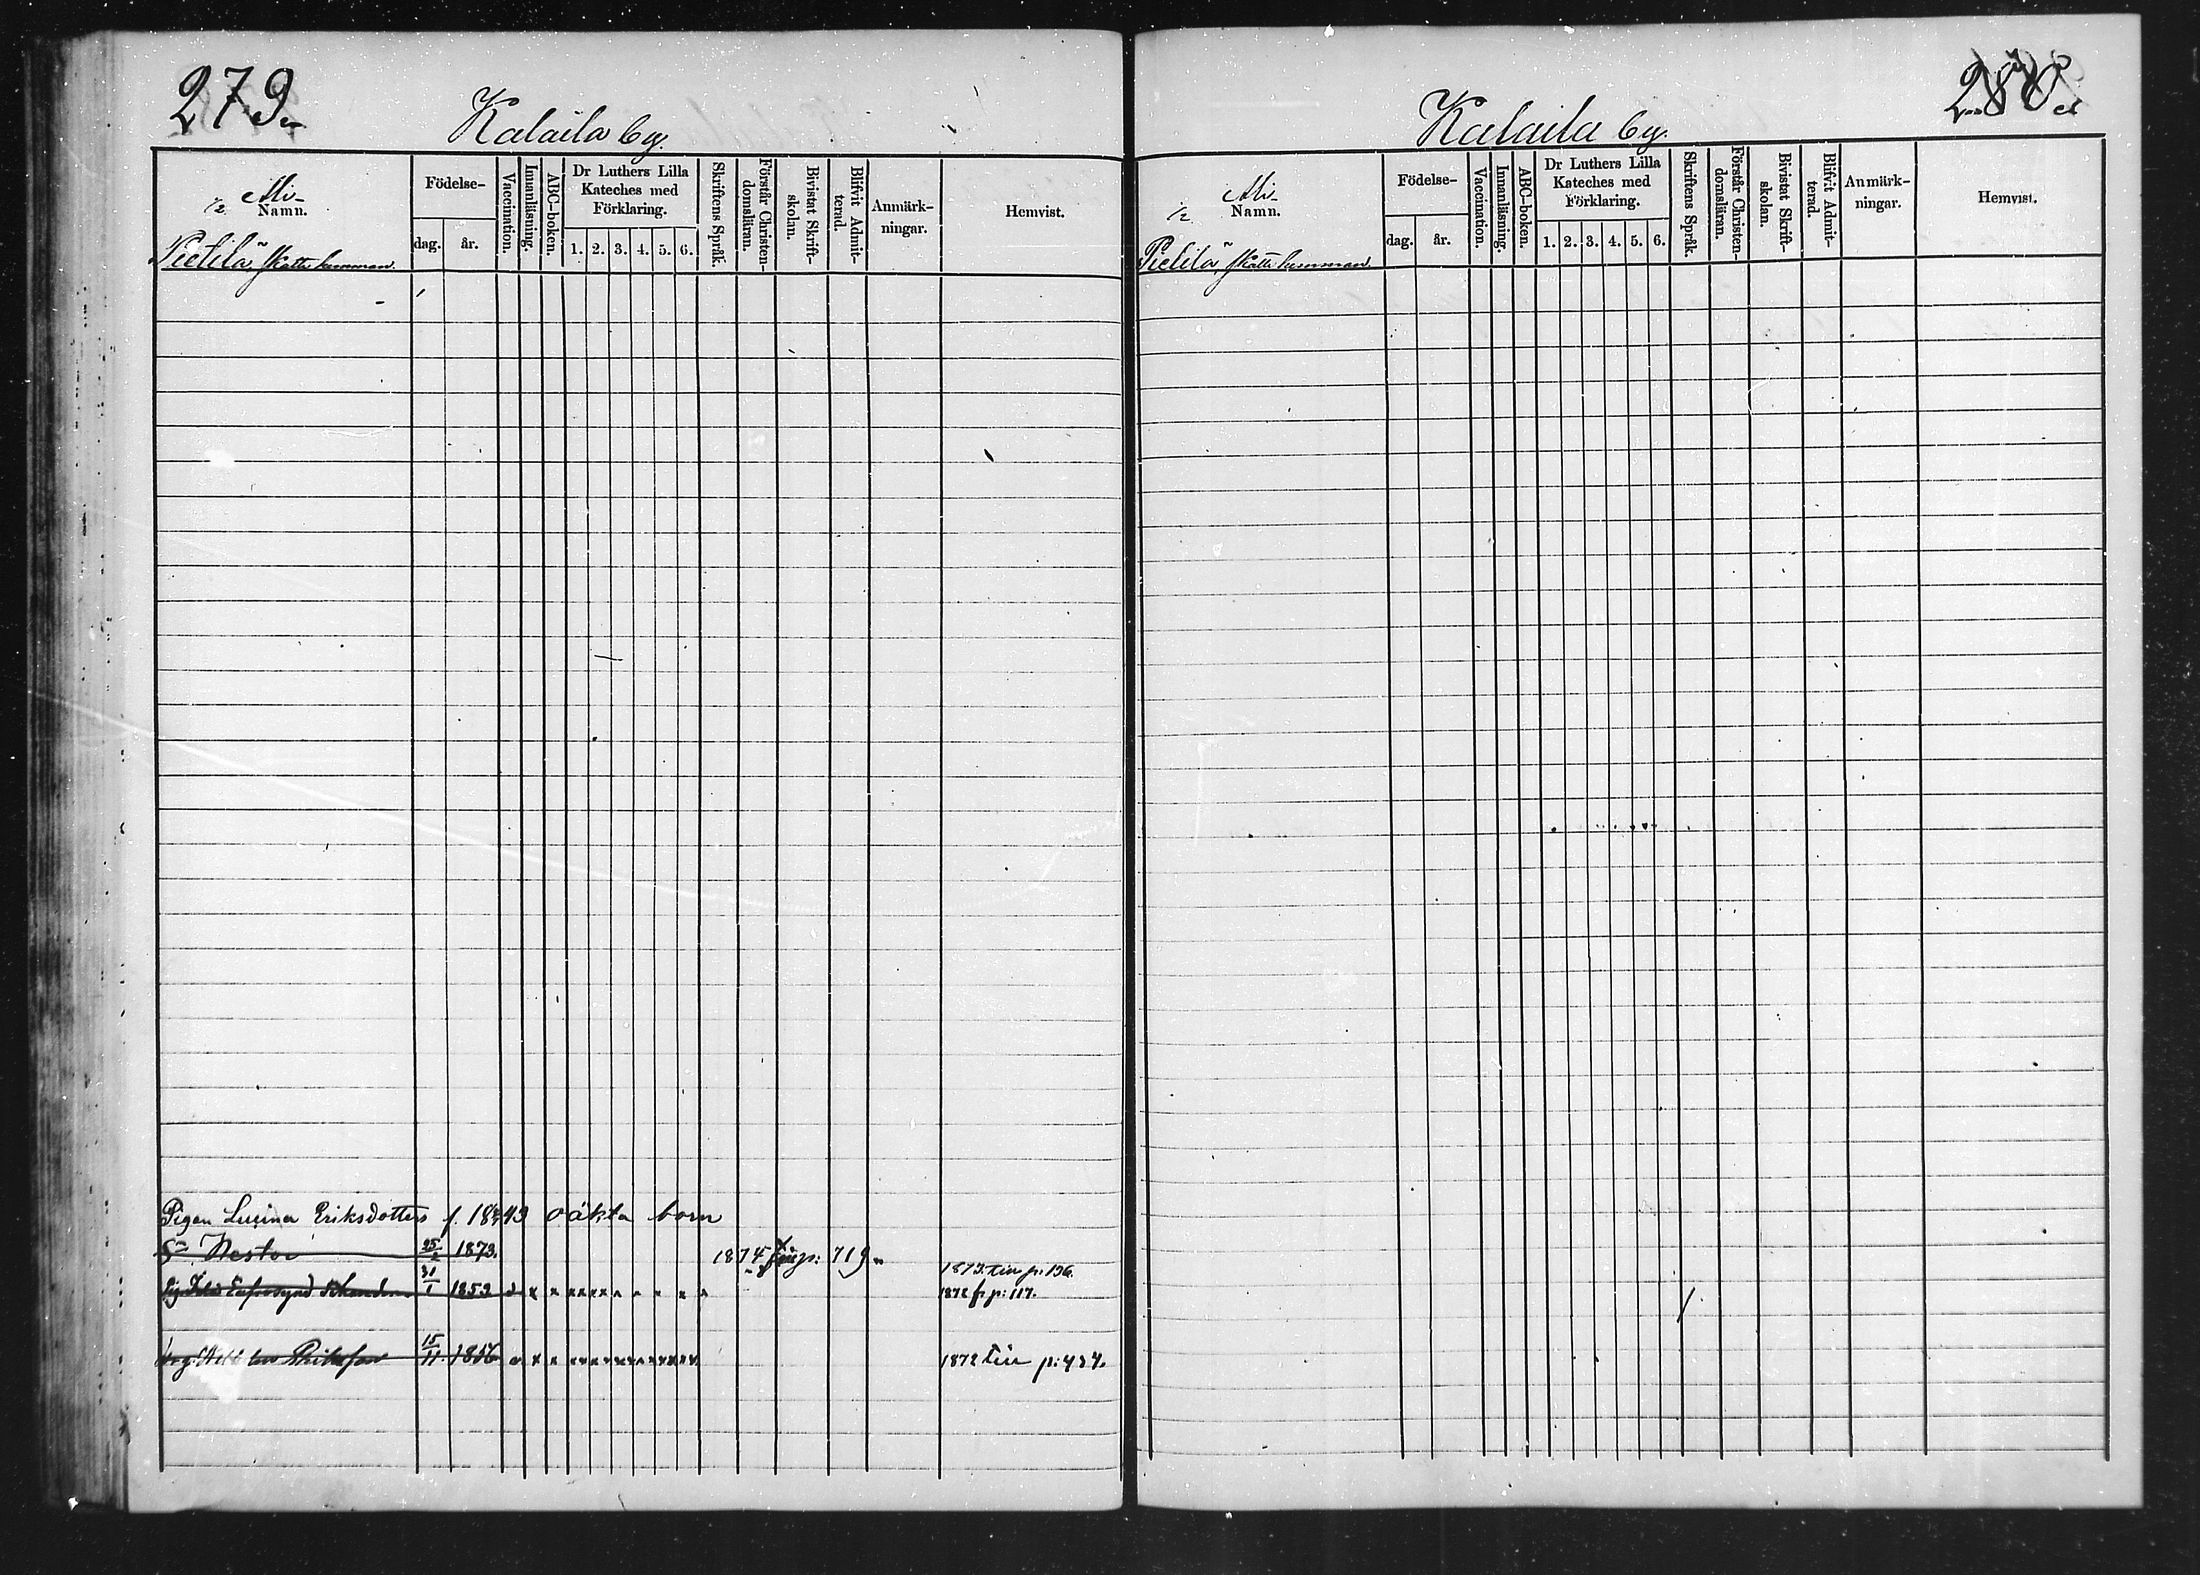 279.
Kalaila by.
Namn.
Födelse-
dag. år.
Vaccination.
Innanläsning.
ABC-boken.
Dr Luthers Lilla
Kateches med
Förklaring.
1. 2. 3. 4. 5. 6.
Skriftens Språk.
Förstår Christen-
domsläran.
Bivistat Skrift-
skolan.
Blifvit Admit-
terad.
Anmärk-
ningar.
Hemvist.
1/2
Pietilä, Skatte hemman.
Pigan Lusina Eriksdotters f. 1843 oäkta barn
Sn Nestor 25/2 1873. 1874 p: 719.
1873. p: 136.
31/1 1853 1872 fr p: 117.
15/11. 1856 1872 p: 437.
280.
Kalaila by.
Namn.
Födelse-
dag. år.
Vaccination.
Innanläsning.
ABC-boken.
Dr Luthers Lilla
Kateches med
Förklaring.
1. 2. 3. 4. 5. 6.
Skriftens Språk.
Förstår Christen-
domsläran.
Bivistat Skrift-
skolan.
Blifvit Admit-
terad.
Anmärk-
ningar.
Hemvist.
1/2
Pietilä, Skatte hemman.